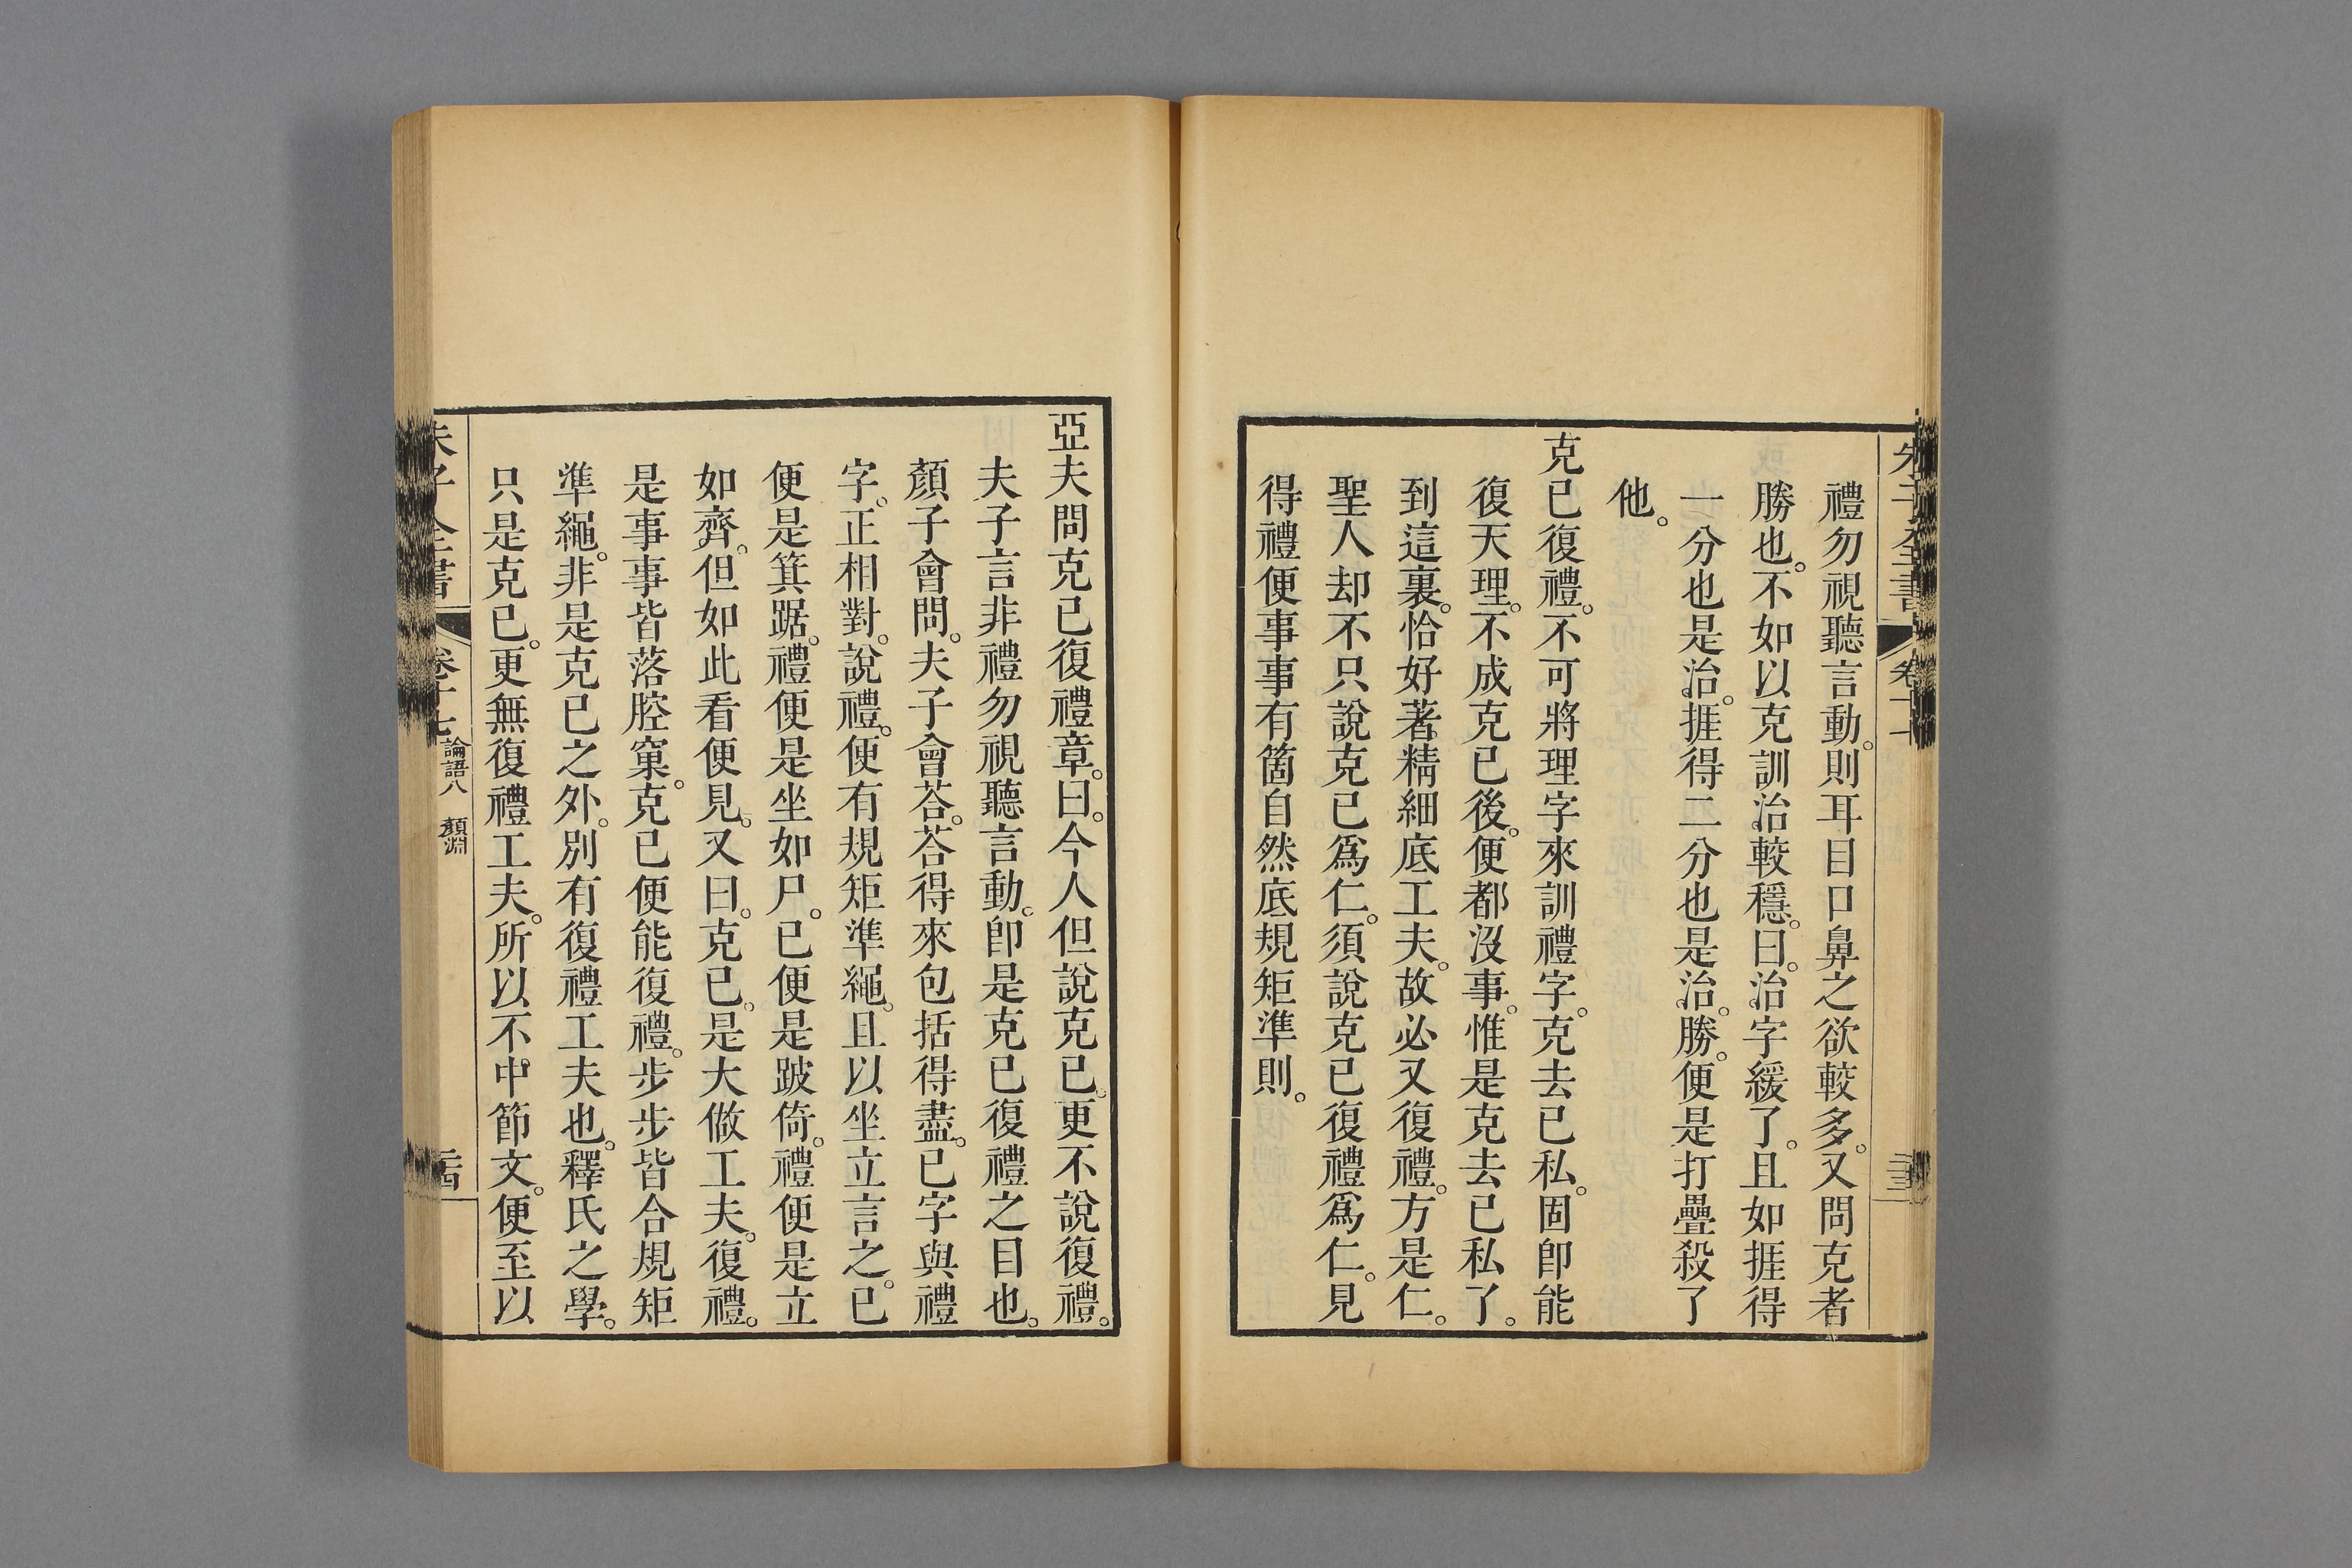 禮勿視聽言動。則耳目口鼻之欲較多。又問克者
勝也。不如以克訓治較穩。曰。治字緩了。且如捱得
一分也是治。捱得二分也是治。勝。便是打疊殺了
他。
克已復禮。不可將理字來訓禮字。克去已私。固卽能
復天理。不成克已後。便都沒事。惟是克去已私了。
到這裏。恰好著精細底工夫。故必又復禮。方是仁。
聖人却不只說克已爲仁。須說克已復禮爲仁。見
得禮便事事有箇自然底規矩準則。
亞夫問克已復禮章。曰。今人但說克已。更不說復禮。
夫子言非禮勿視聽言動。卽是克已復禮之目也。
顏子會問。夫子會荅。荅得來包括得盡。已字與禮
字。正相對。說禮。便有規矩準繩。且以坐立言之。已
便是箕踞。禮便是坐如尸。已便是跛倚。禮便是立
如齊。但如此看便見。又曰。克已。是大做工夫。復禮。
是事事皆落腔窠。克已便能復禮。步步皆合規矩
準繩。非是克已之外。別有復禮工夫也。釋氏之學。
只是克已。更無復禮工夫。所以不中節文。便至以
朱子全書
卷十七
論語八 顏淵